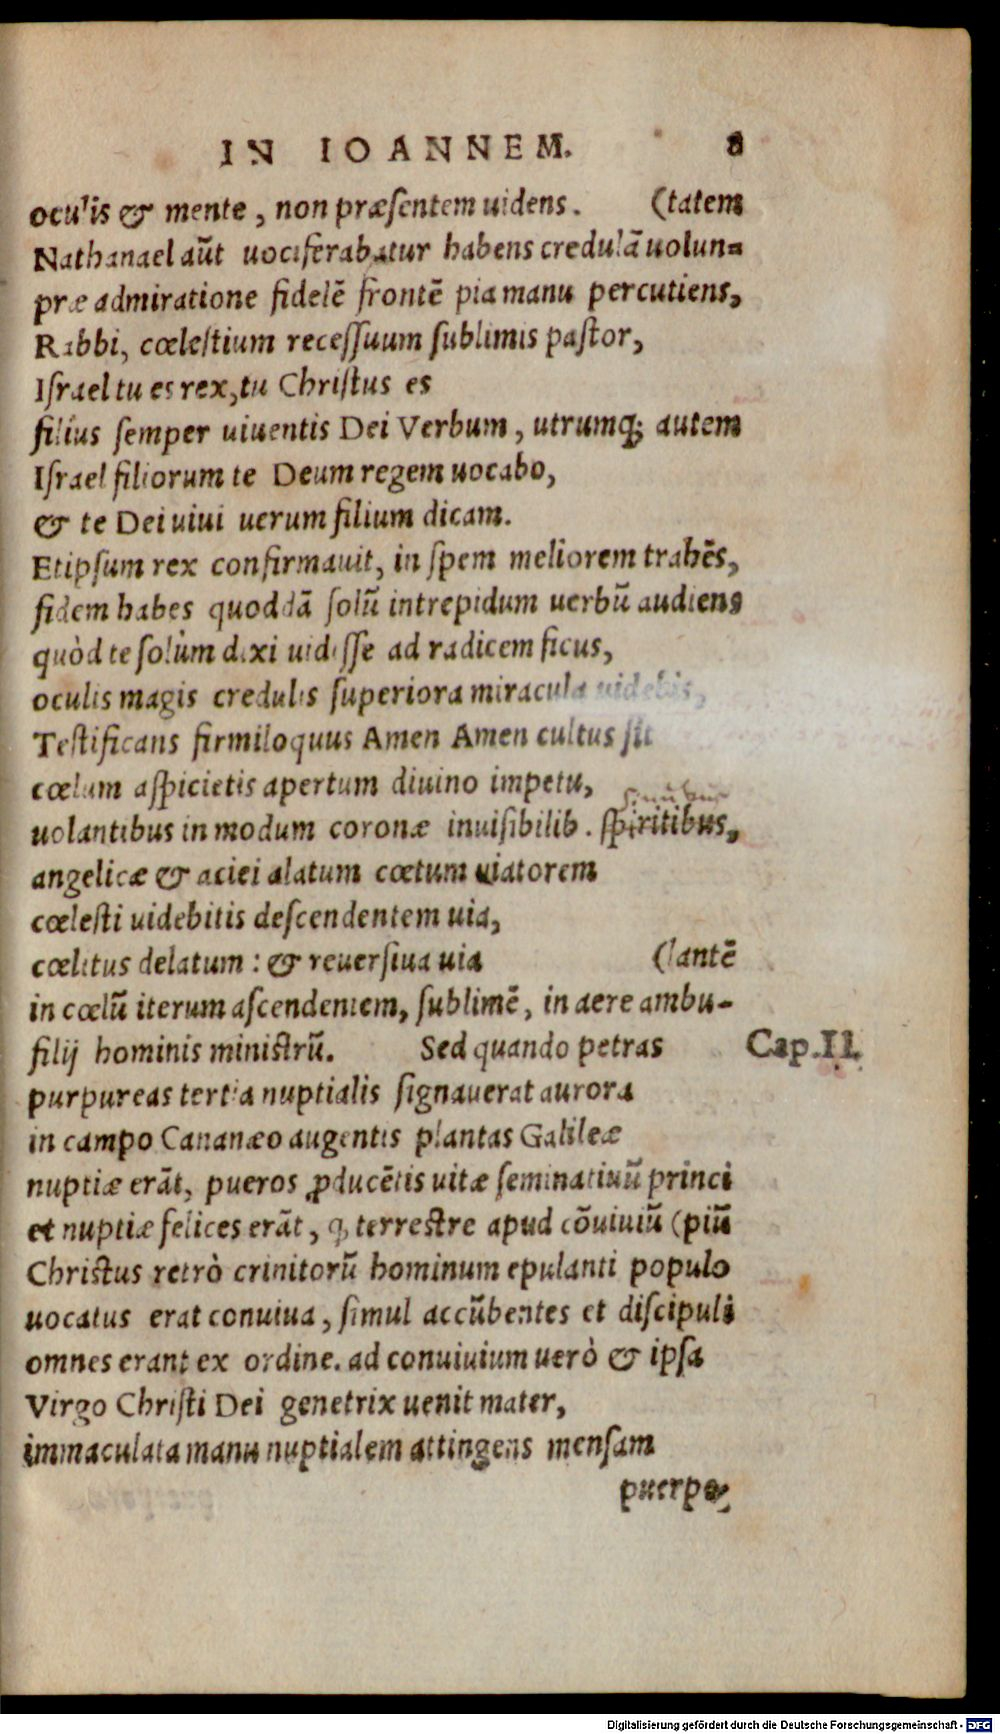 IN IOANNEM. 8
oculis & mente, non præsentem uidens. (tatem
Nathanael aūt uociferabatur habens credulā uolun=
præ admiratione fidelē frontē pia manu percutiens,
Rabbi, cœlestium recessuum sublimis pastor,
Israel tu es rex, tu Christus es
filius semper uiuentis Dei Verbum, utrumq; autem
Israel filiorum te Deum regem uocabo,
& te Dei uiui uerum filium dicam.
Et ipsum rex confirmauit, in spem meliorem trahēs,
fidem habes quoddā solū intrepidum uerbū audiens
quòd te solùm dixi uidisse ad radicem ficus,
oculis magis credulis superiora miracula uidebis,
Testificans firmiloquus Amen Amen cultus sit
cœlum aspicietis apertum diuino impetu,
uolantibus in modum coronæ inuisibilib. spiritibus,
angelicæ & aciei alatum cœtum uiatorem
cœlesti uidebitis descendentem uia,
cœlitus delatum: & reuersiua uia (lantē
in cœlū iterum ascendentem, sublimē, in aere ambu-
filij hominis ministrū. Sed quando petras Cap.II.
purpureas tertia nuptialis signauerat aurora
in campo Cananæo augentis plantas Galileæ
nuptiæ erāt, pueros ꝓducētis uitæ seminatiuū princi
et nuptiæ felices erāt, q terrestre apud cōuiuiū (piū
Christus retrò crinitorū hominum epulanti populo
uocatus erat conuiua, simul accūbentes et discipuli
omnes erant ex ordine. ad conuiuium uerò & ipsa
Virgo Christi Dei genetrix uenit mater,
immaculata manu nuptialem attingens mensam
puerpe,
Digitalisierung gefördert durch die Deutsche Forschungsgemeinschaft - DFG